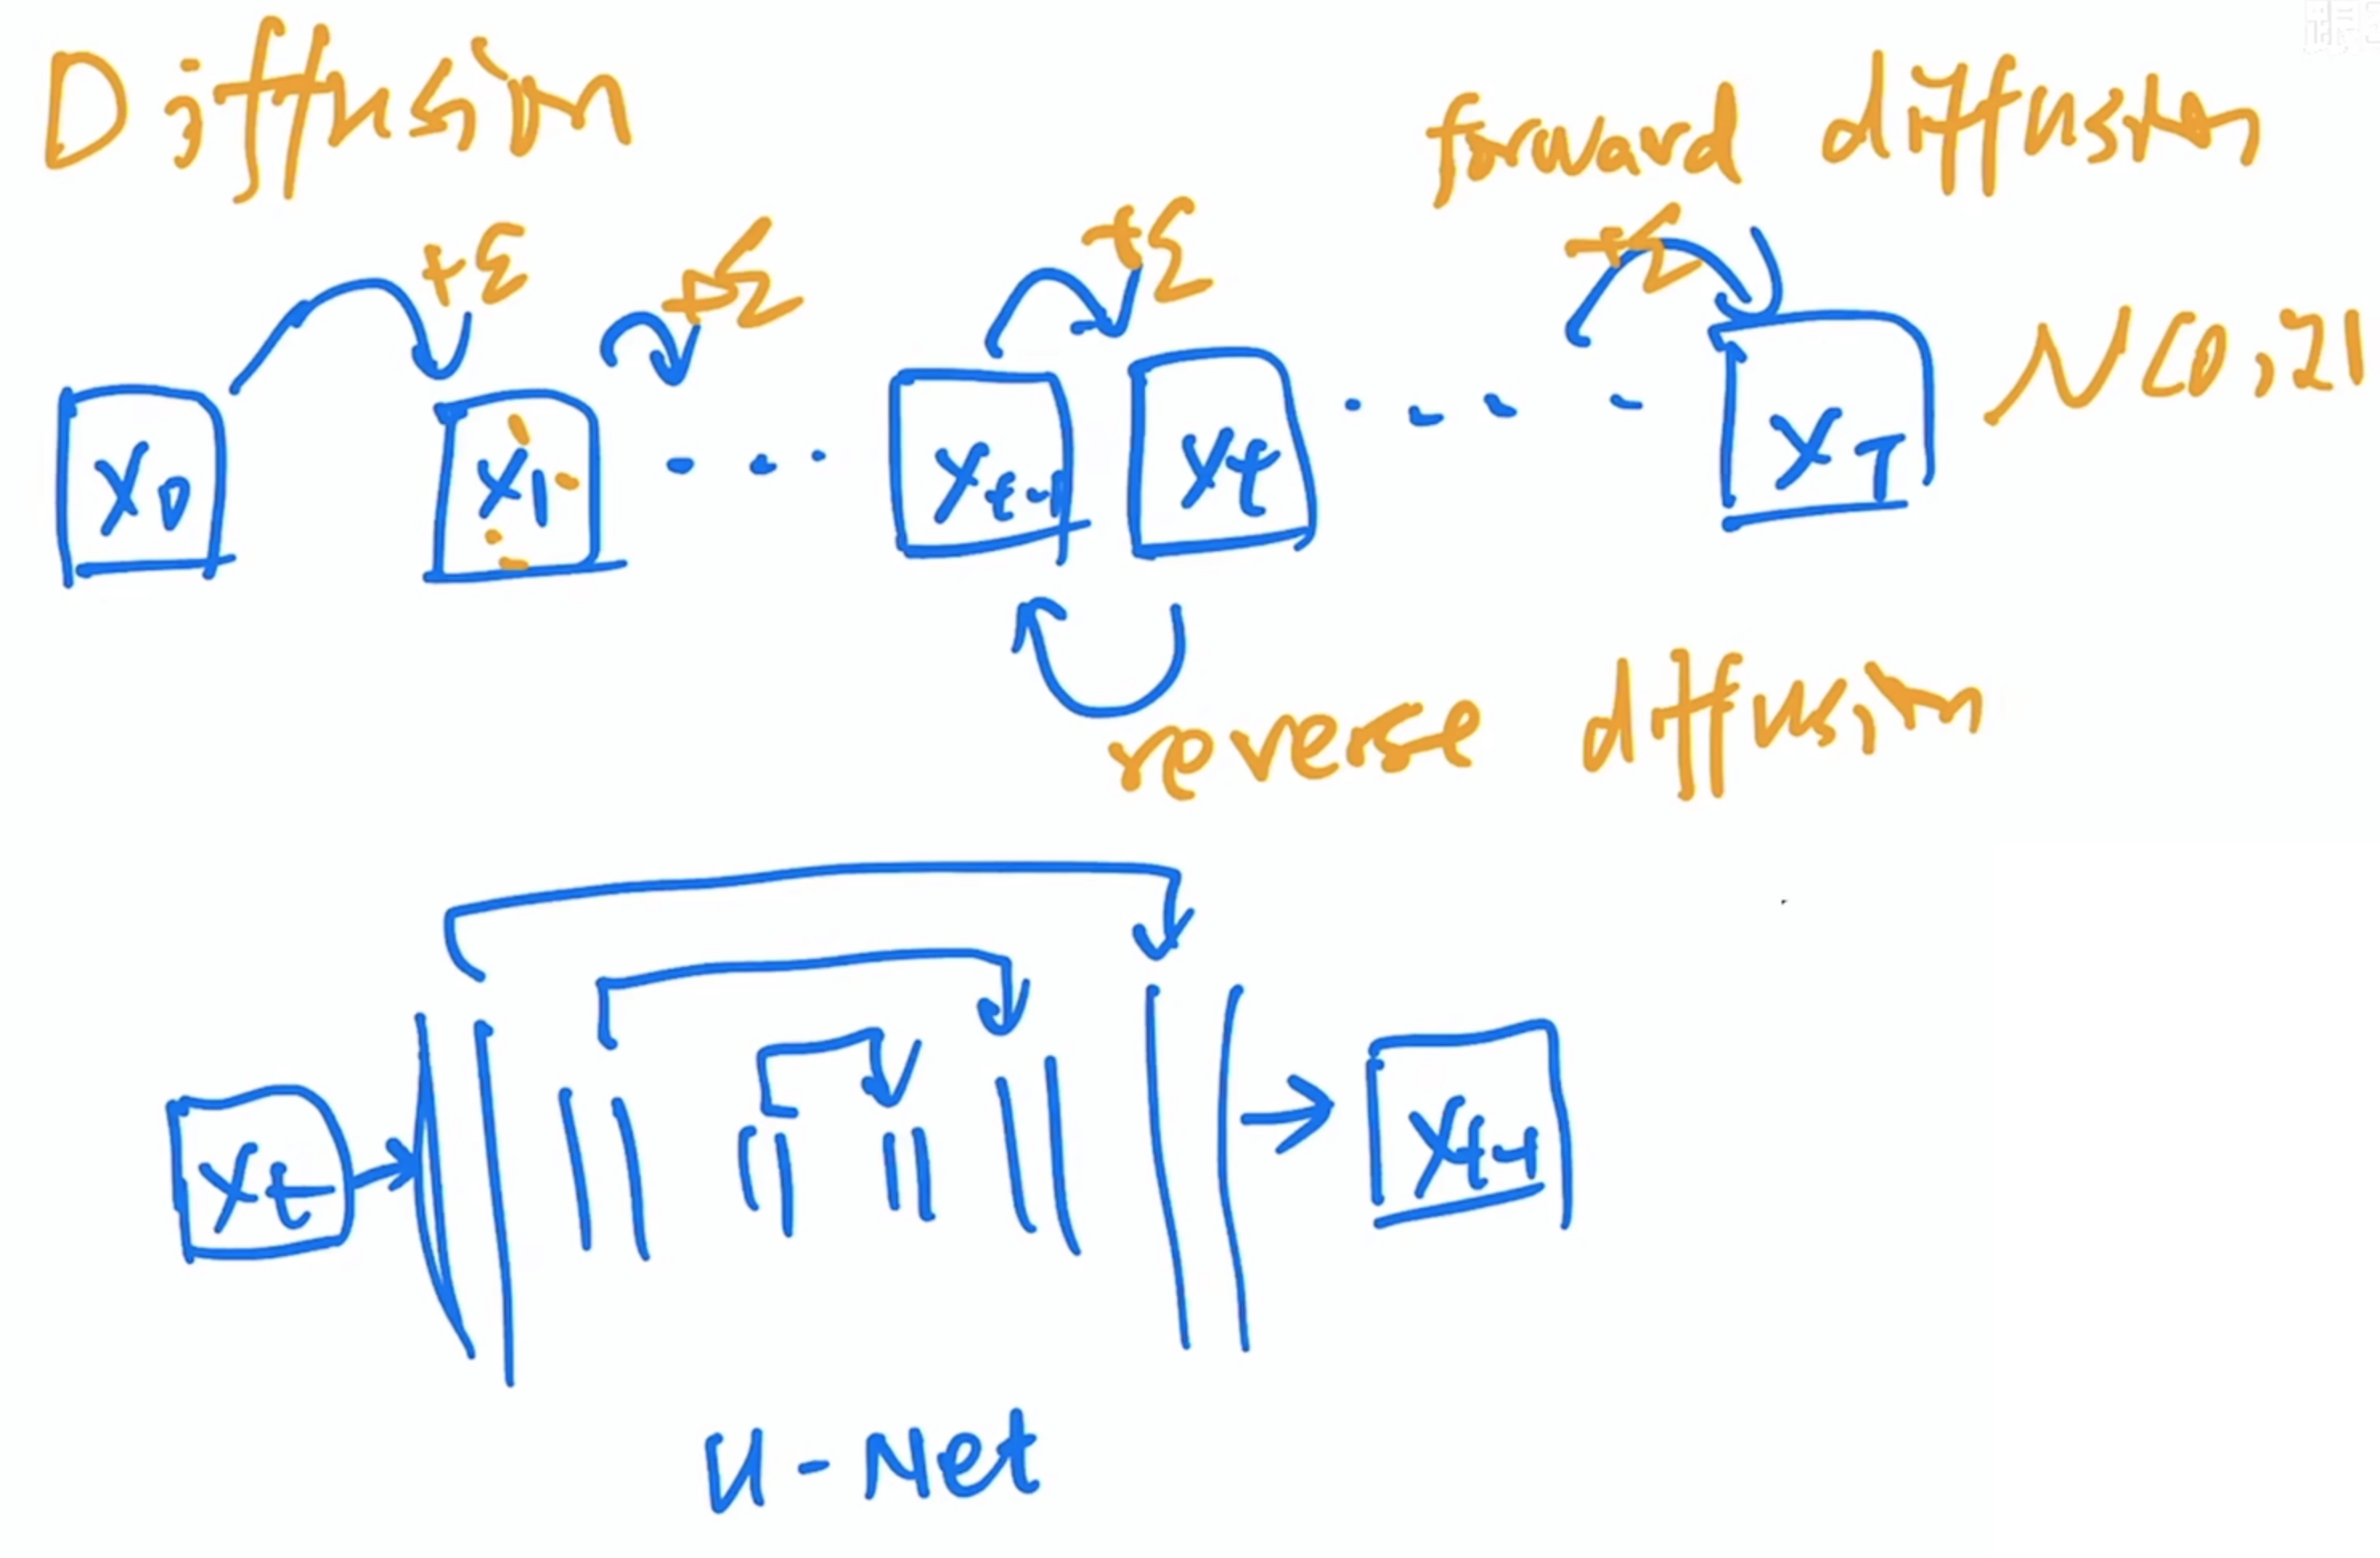 Diffusion
forward diffusion
+ε +ε +ε +ε
X0 X1 .... Xt-1 Xt .... XT N(0,2)
reverse diffusion
Xt Xt-1
U-Net